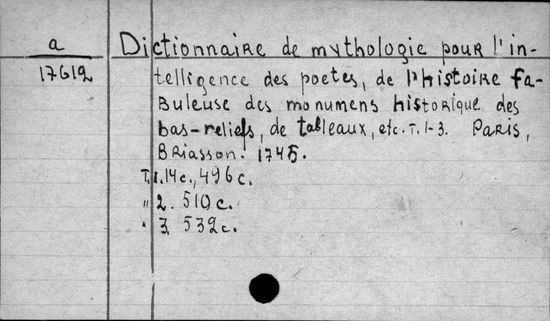 a
17612
Dictionnaire de mythologie pour l'in-
telligence des poetes, de l'histoire fa-
buleuse des monumens historique des
bas-reliefs, de tableaux, etc. T. 1-3. Paris,
Briasson. 1745.
T. 1. 14 c., 496 c.
" 2. 510 c.
" 3. 532 c.